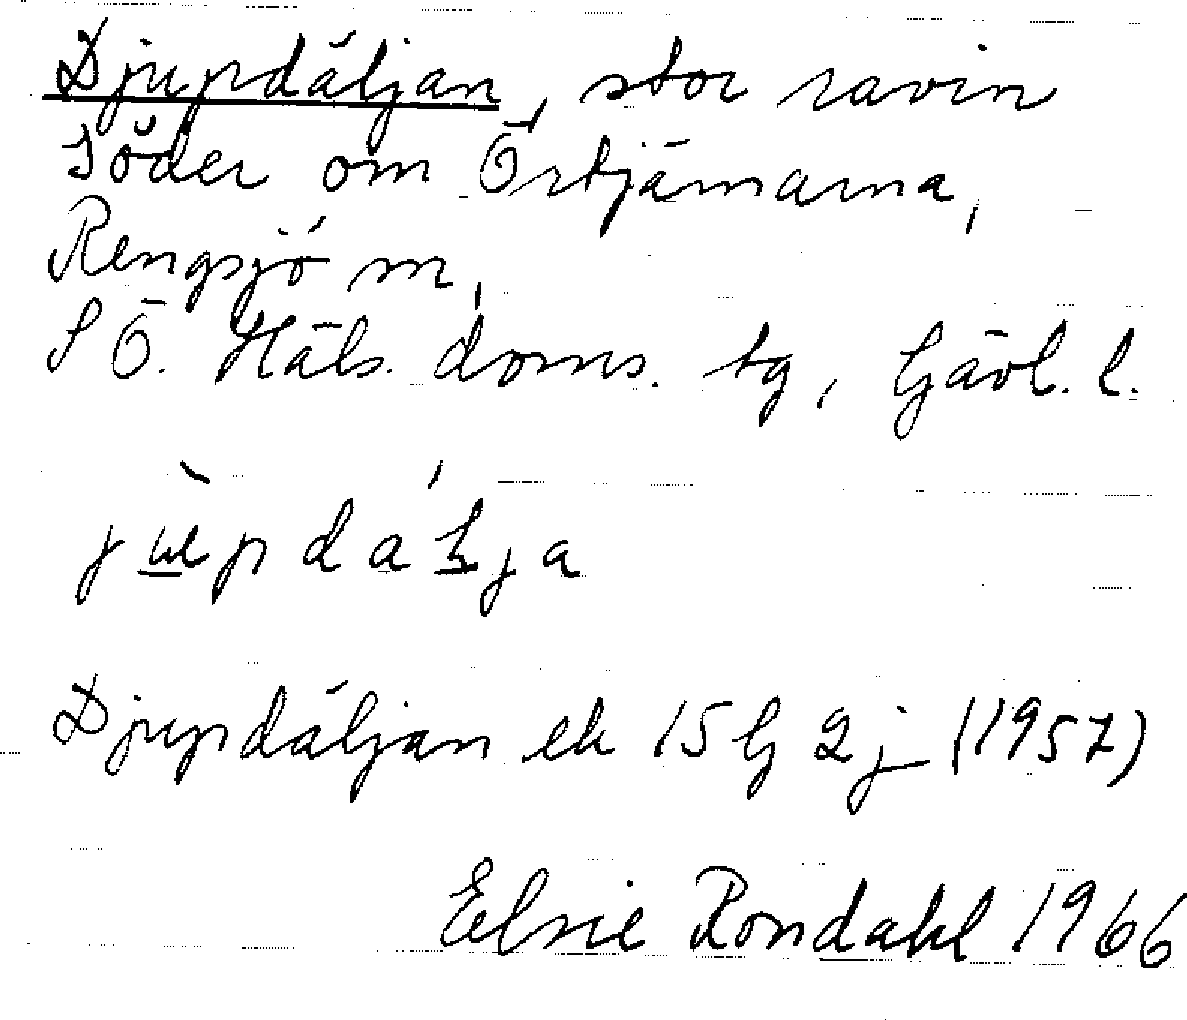 Djupdäljan, stor ravin
Söder om Örtjärnarna,
Rengsjö m,
S Ö. Häls. doms. tg, Gävl. l.
Djupdäljan ek 15 G 2 j (1957)
Elsie Rondahl 1966